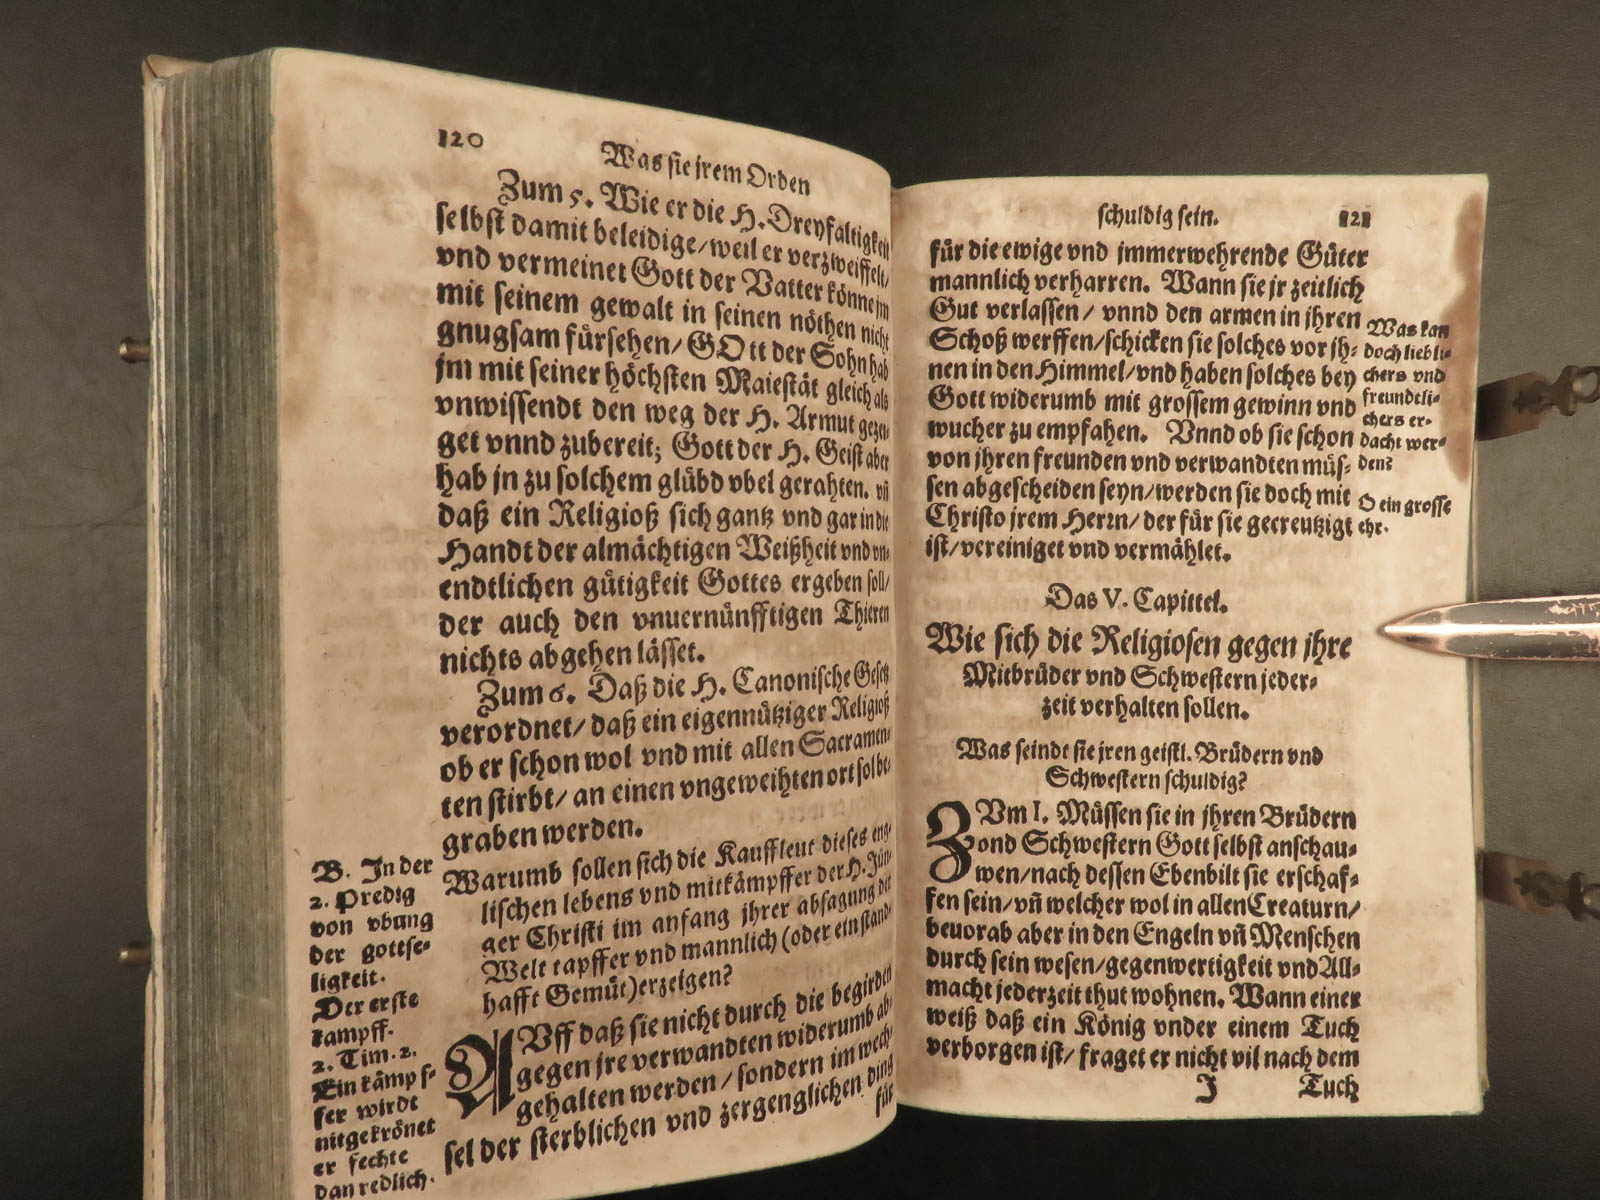 120
Was sie jrem Orden
Zum 5. Wie er die H. Dreyfaltigkeit
selbst damit beleidige/weil er verzweiffelt/
vnd vermeinet Gott der Vatter könne jm
mit seinem gewalt in seinen nöthen nicht
gnugsam fürsehen/ GOtt der Sohn hab
jm mit seiner höchsten Maiestät gleich als
vnwissendt den weg der H. Armut gezei-
get vnnd zubereit; Gott der H. Geist aber
hab jn zu solchem glübd vbel gerahten. vñ
daß ein Religioß sich gantz vnd gar in die
Handt der almächtigen Weißheit vnd vn-
endtlichen gütigkeit Gottes ergeben soll/
der auch den vnuernünfftigen Thieren
nichts abgehen lässet.
Zum 6. Daß die H. Canonische Gesetz
verordnet/ daß ein eigennütziger Religioß
ob er schon wol vnd mit allen Sacramen-
ten stirbt/ an einen vngeweihten ort sol be-
graben werden.
Warumb sollen sich die Kauffleut dieses eng-
lischen lebens vnd mitkämpffer der H. Jün-
ger Christi im anfang jhrer absagung der
Welt tapffer vnd mannlich (oder ein stand-
hafft Gemüt) erzeigen?
AVff daß sie nicht durch die begirden
gegen jre verwandten widerumb ab-
gehalten werden/ sondern im wech-
sel der sterblichen vnd zergenglichen ding
für
B. In der
2. Predig
von vbung
der gottse-
ligkeit.
Der erste
kampff.
2. Tim. 2.
Ein kämpf-
fer wirdt
nit gekrönet
er fechte
dan redlich.
schuldig sein. 121
für die ewige vnd jmmerwehrende Güter
mannlich verharren. Wann sie jr zeitlich
Gut verlassen/ vnnd den armen in jhren
Schoß werffen/schicken sie solches vor jh-
nen in den Himmel/vnd haben solches bey
Gott widerumb mit grossem gewinn vnd
wucher zu empfahen. Vnnd ob sie schon
von jhren freunden vnd verwandten müs-
sen abgescheiden seyn/werden sie doch mit
Christo jrem Herrn/ der für sie gecreutzigt
ist/vereiniget vnd vermählet.
Was kan
doch liebli-
chers vnd
freundtli-
chers er-
dacht wer-
den?
O ein grosse
ehr.
Das V. Capittel.
Wie sich die Religiosen gegen jhre
Mitbrüder vnd Schwestern jeder-
zeit verhalten sollen.
Was seindt sie jren geistl. Brüdern vnd
Schwestern schuldig?
ZVm 1. Müssen sie in jhren Brüdern
vnd Schwestern Gott selbst anschau-
wen/nach dessen Ebenbilt sie erschaf-
fen sein/vñ welcher wol in allen Creaturn/
beuorab aber in den Engeln vñ Menschen
durch sein wesen/gegenwertigkeit vnd All-
macht jederzeit thut wohnen. Wann einer
weiß daß ein König vnder einem Tuch
verborgen ist/ fraget er nicht vil nach dem
J Tuch